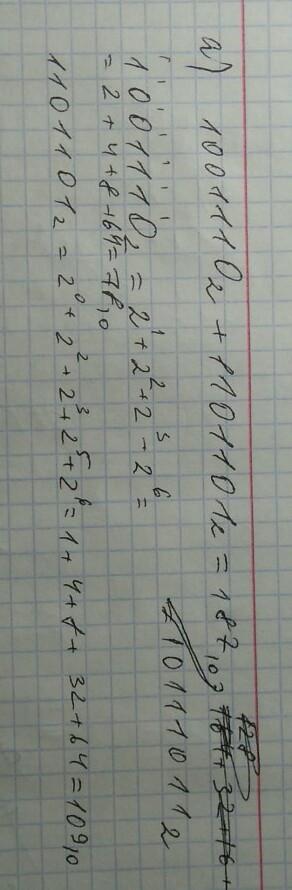 a) 1001110₂ + 1101101₂ = 187₁₀
= 10111011₂
1001110₂ = 2¹ + 2² + 2³ + 2⁶ =
= 2 + 4 + 8 + 64 = 78₁₀
1101101₂ = 2⁰ + 2² + 2³ + 2⁵ + 2⁶ = 1 + 4 + 8 + 32 + 64 = 109₁₀